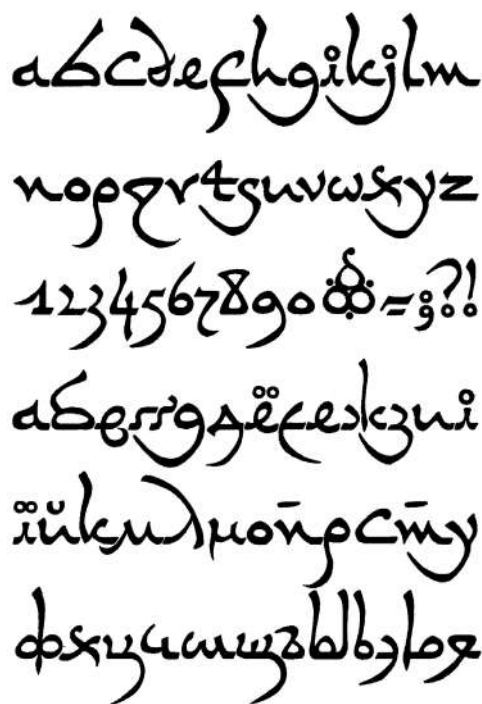 abcdefhgikjlm
nopqrtsuvwxyz
1234567890=;?!
абвгґддёєежзиі
їйкмлнопрсту
фхцчшщъыьэюя